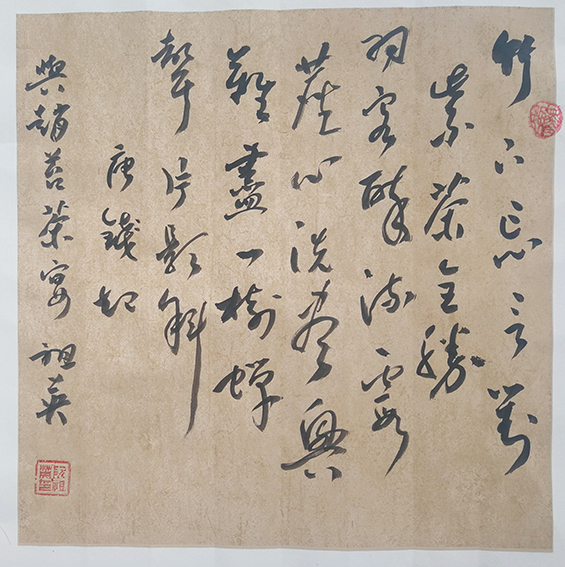 竹下忘言對
紫茶全勝
羽客醉流霞
塵心洗盡興
難盡一樹蟬
聲片影斜
唐錢起
與趙莒茶宴 祖英